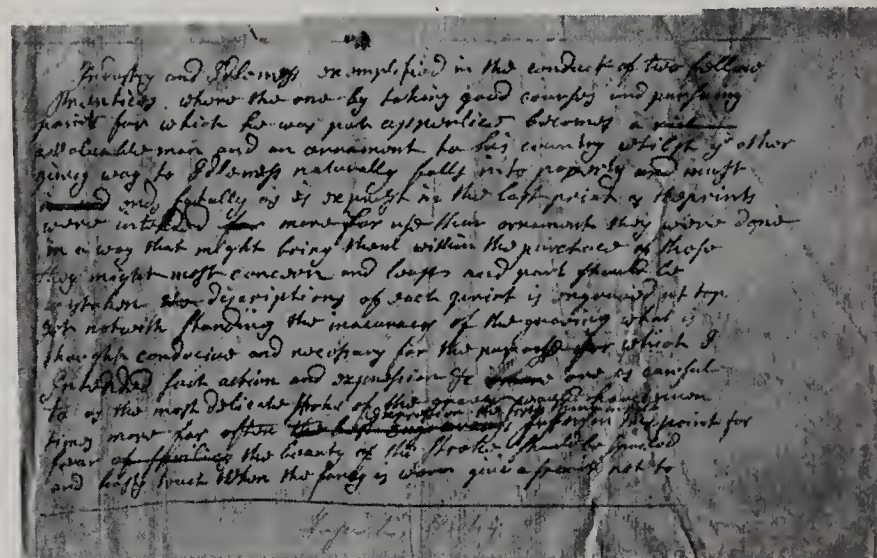 Industry and Idleness exemplified in the conduct of two fellow
Prentices. where the one by taking good courses and pursuing
points for which he was put apprentice becomes a
a valuable man and an ornament to his country whilst ye other
giving way to Idleness naturally falls into poverty and must
end fatally as is exprest in the last print as the prints
were intended more for use than ornament they were done
in a way that might bring them within the purchace of those
they might most concern and least any part should be
mistaken discriptions of each print is engraved at top
yet notwith standing the inaccuracy of the graving what is
thought conducive and necessary for the purpose for which I
Intended such action and expression &c one is carefull
to as the most delicate stroke of the graver would have given
times more for often expression the first
print for
fear the beauty of the stroke should be spoiled
and hasty touch when the fancy is warm give a spirit not to